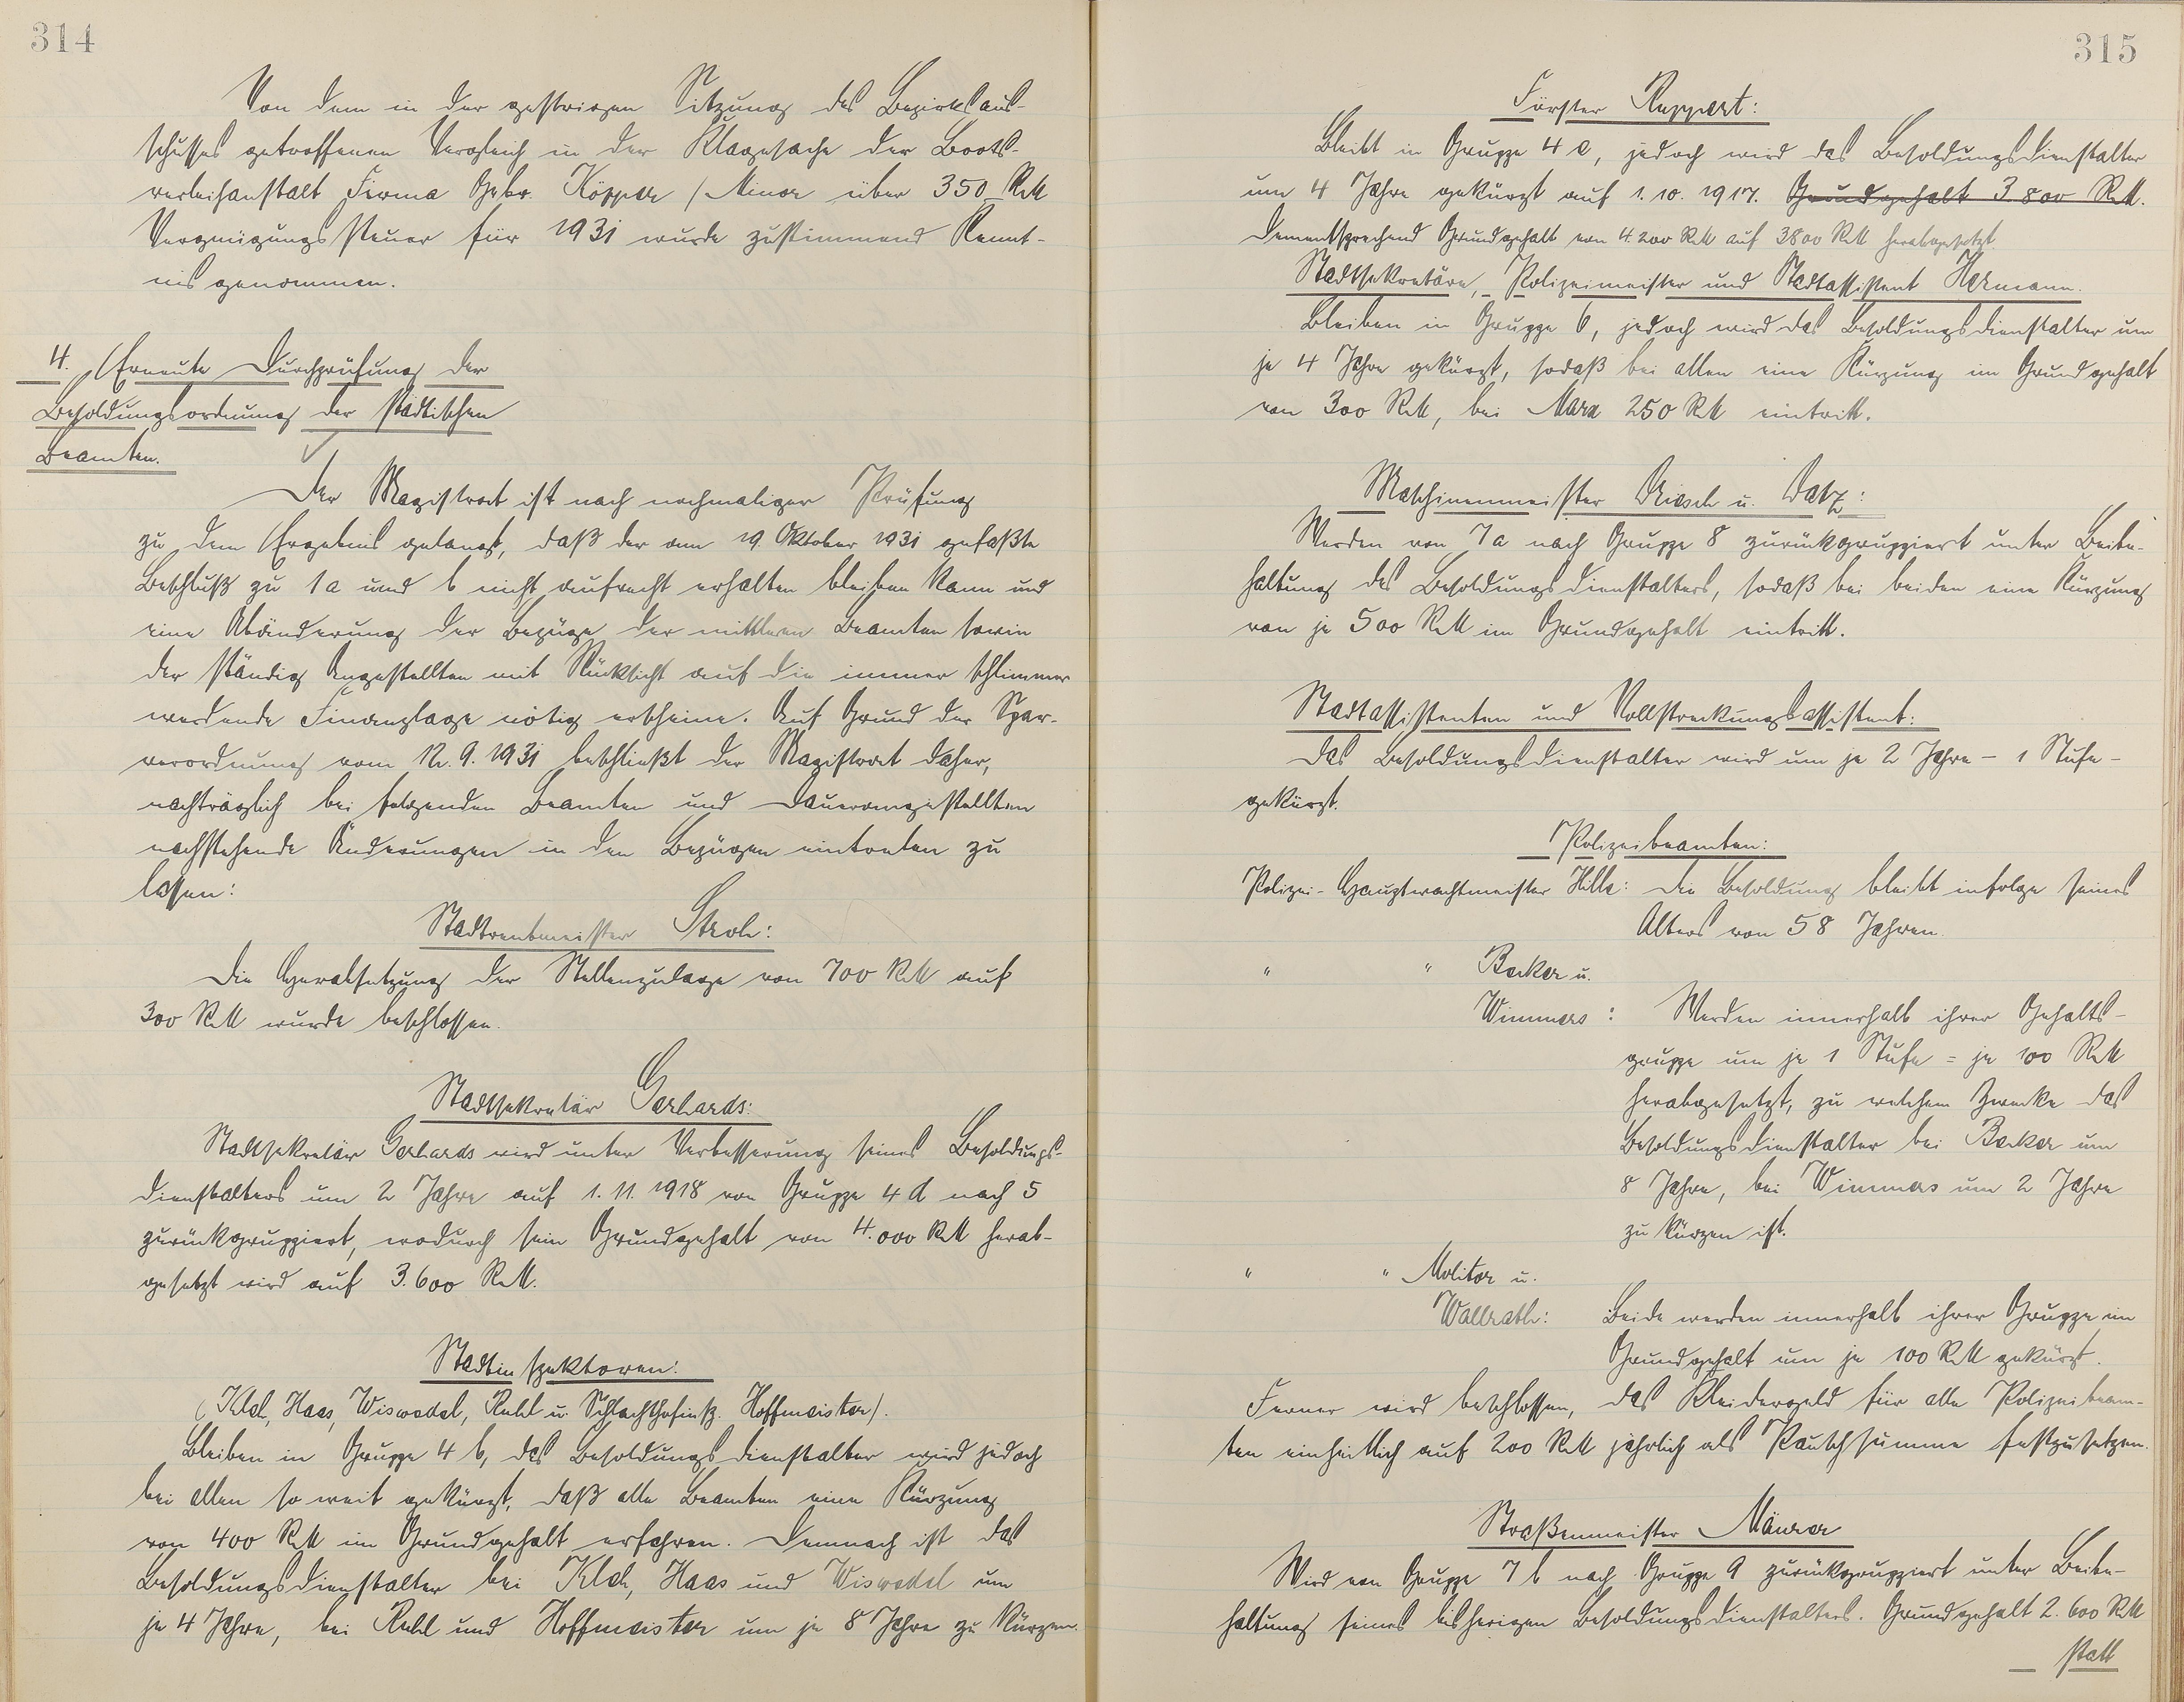 314
Von dem in der gestrigen Sitzung des Bezirksaus-
schusses getroffenen Vergleich in der Klagesache der Boots-
verleihanstalt Firma Gebr. Köpper / Minor über 350 RM
Vergnügungssteuer für 1931 wurde zustimmend Kennt-
nis genommen.
4. Erneute Durchprüfung der
Besoldungsordnung der städtischen
Beamten.
Der Magistrat ist nach nochmaliger Prüfung
zu dem Ergebnis gelangt, daß der am 19. Oktober 1931 gefaßte
Beschluß zu 1a und b nicht aufrecht erhalten bleiben kann und
eine Abänderung der Bezüge der mittleren Beamten sowie
der ständig Angestellten mit Rücksicht auf die immer schlimmer
werdende Finanzlage nötig erscheine. Auf Grund der Spar-
verordnung vom 12. 9. 1931 beschließt der Magistrat daher,
nachträglich bei folgenden Beamten und Dauerangestellten
nachstehende Änderungen in den Bezügen eintreten zu
lassen:
Stadtrentmeister Stroh:
Die Herabsetzung der Stellenzulage von 700 RM auf
300 RM wurde beschlossen.
Stadtsekretär Gerhards:
Stadtsekretär Gerhards wird unter Verbesserung seines Besoldungs-
dienstalters um 2 Jahre auf 1. 11. 1918 von Gruppe 4 d nach 5
zurückgruppiert, wodurch sein Grundgehalt von 4.000 RM herab-
gesetzt wird auf 3.600 RM.
Stadtinspektoren:
(Kloh, Haas, Wiswedel, Ruhl u. Schlachthofinsp. Hoffmeister).
Bleiben in Gruppe 4 b, das Besoldungsdienstalter wird jedoch
bei allen so weit gekürzt, daß alle Beamten eine Kürzung
von 400 RM im Grundgehalt erfahren. Demnach ist das
Besoldungsdienstalter bei Kloh, Haas und Wiswedel um
je 4 Jahre, bei Ruhl und Hoffmeister um je 8 Jahre zu kürzen.
315
Förster Ruppert:
Bleibt in Gruppe 4 c, jedoch wird das Besoldungsdienstalter
um 4 Jahre gekürzt auf 1. 10. 1917. Grundgehalt 3.800 RM.
Dementsprechend Grundgehalt von 4.200 RM auf 3800 RM herabgesetzt.
Stadtsekretäre, Polizeimeister und Stadtassistent Hermann.
Bleiben in Gruppe 6, jedoch wird das Besoldungsdienstalter um
je 4 Jahre gekürzt, sodaß bei allen eine Kürzung im Grundgehalt
von 300 RM, bei Marx 250 RM eintritt.
Maschinenmeister Driesch u. Datz:
Werden von 7a nach Gruppe 8 zurückgruppiert unter Beibe-
haltung des Besoldungsdienstalters, sodaß bei beiden eine Kürzung
von je 500 RM im Grundgehalt eintritt.
Stadtassistenten und Vollstreckungsassistent:
Das Besoldungsdienstalter wird um je 2 Jahre - 1 Stufe -
gekürzt.
Polizeibeamten:
Polizei-Hauptwachtmeister Hille: Die Besoldung bleibt infolge seines
Alters von 58 Jahren.
" " Becker u.
Wimmers : Werden innerhalb ihrer Gehalts-
gruppe um je 1 Stufe = je 100 RM
herabgesetzt, zu welchem Zwecke das
Besoldungsdienstalter bei Becker um
8 Jahre, bei Wimmers um 2 Jahre
zu kürzen ist.
" " Molitor u.
Wallrath: Beide werden innerhalb ihrer Gruppe im
Grundgehalt um je 100 RM gekürzt.
Ferner wird beschlossen, das Kleidergeld für alle Polizeibeam-
ten einheitlich auf 200 RM jährlich als Pauschsumme festzusetzen.
Straßenmeister Mäurer
Wird von Gruppe 7 b nach Gruppe 9 zurückgruppiert unter Beibe-
haltung seines bisherigen Besoldungsdienstalters. Grundgehalt 2.600 RM
statt